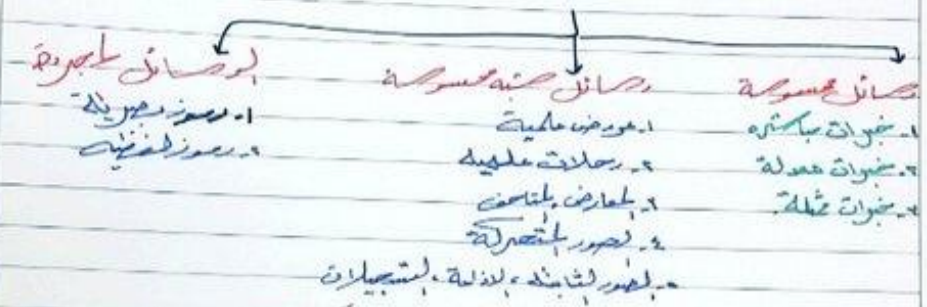 وسائل محسوسة
١- خبرات مباشره
٢- خبرات معدلة
٣- خبرات ممثلة.
وسائل شبه محسوسة
١- عروض علمية
٢- رحلات علميه
٣- المعارض والمتاحف
٤- الصور المتحركة
٥- الصور الثابته، الاذاعة، التسجيلات
الوسائل المجردة
١- رموز بصرية
٢- رموز لفظيه